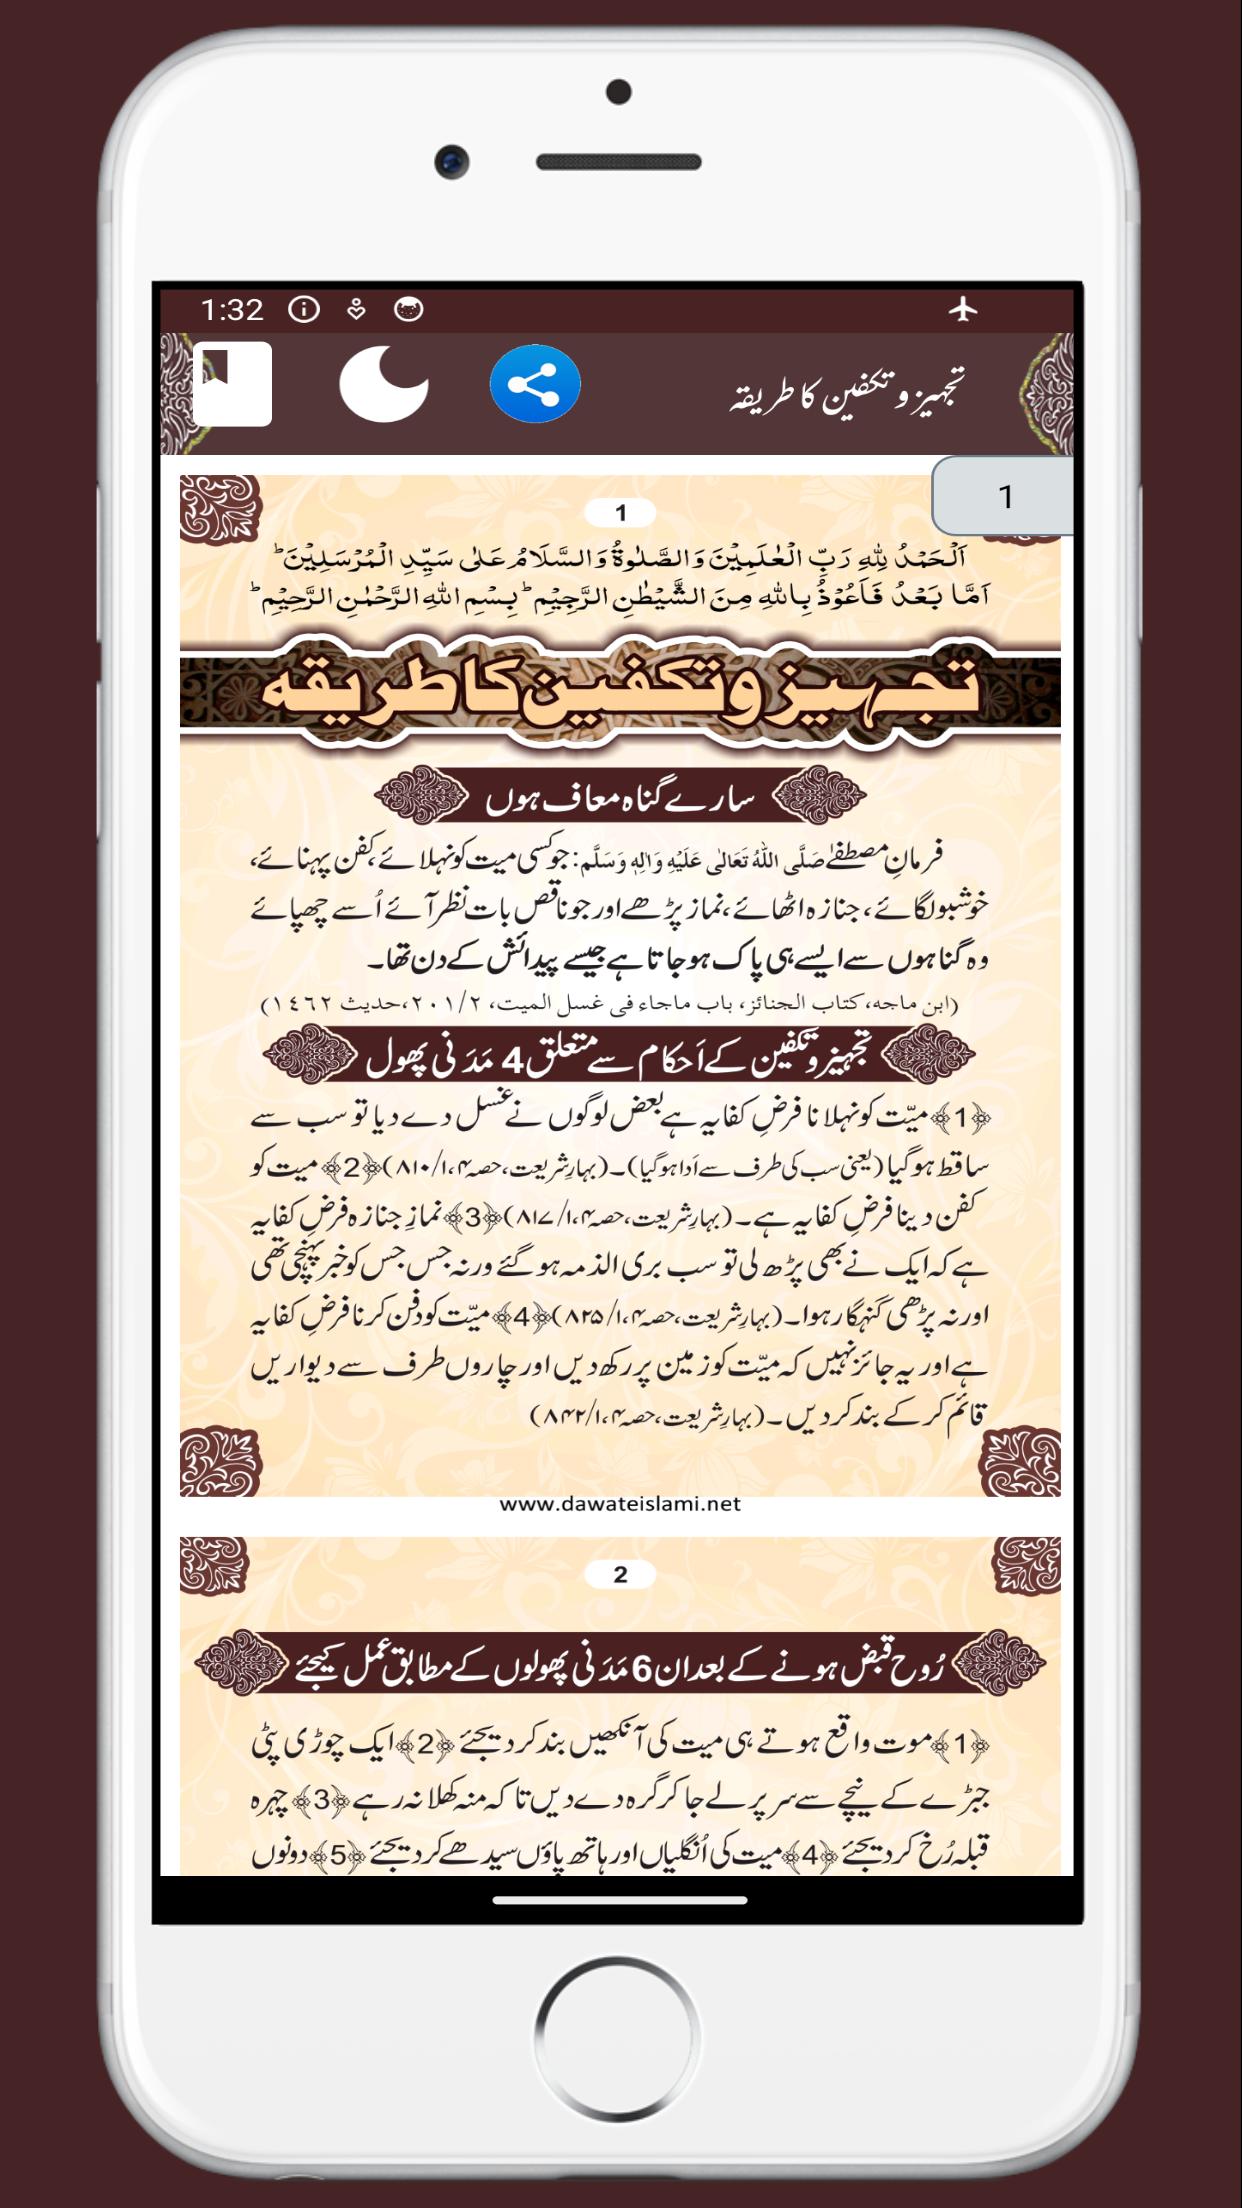 1:32
تجہیز و تکفین کا طریقہ
1
1
اَلْحَمْدُ لِلّٰهِ رَبِّ الْعٰلَمِيْنَ وَالصَّلٰوةُ وَالسَّلَامُ عَلٰى سَيِّدِ الْمُرْسَلِيْنَ ؕ
اَمَّا بَعْدُ فَاَعُوْذُ بِاللّٰهِ مِنَ الشَّيْطٰنِ الرَّجِيْمِ ؕ بِسْمِ اللّٰهِ الرَّحْمٰنِ الرَّحِيْمِ ؕ
تجہیز و تکفین کا طریقہ
سارے گناہ معاف ہوں
فرمانِ مصطفےٰ صَلَّی اللّٰهُ تَعَالٰی عَلَیْهِ وَاٰلِهٖ وَسَلَّم: جو کسی میت کو نہلائے، کفن پہنائے،
خوشبو لگائے، جنازہ اٹھائے، نماز پڑھے اور جو ناقص بات نظر آئے اُسے چھپائے
وہ گناہوں سے ایسے ہی پاک ہو جاتا ہے جیسے پیدائش کے دن تھا۔
(ابن ماجہ، کتاب الجنائز، باب ماجاء فی غسل المیت، ٢٠١/٢، حدیث ١٤٦٢)
تجہیز و تکفین کے اَحکام سے متعلق 4 مَدَنی پھول
﴿1﴾ میّت کو نہلانا فرضِ کفایہ ہے بعض لوگوں نے غسل دے دیا تو سب سے
ساقط ہو گیا (یعنی سب کی طرف سے اَدا ہو گیا)۔ (بہارِ شریعت، حصہ۴، ۱/۸۱۰) ﴿2﴾ میت کو
کفن دینا فرضِ کفایہ ہے۔ (بہارِ شریعت، حصہ۴، ۱/۸۱۷) ﴿3﴾ نمازِ جنازہ فرضِ کفایہ
ہے کہ ایک نے بھی پڑھ لی تو سب بری الذمہ ہو گئے ورنہ جس جس کو خبر پہنچی تھی
اور نہ پڑھی گنہگار ہوا۔ (بہارِ شریعت، حصہ۴، ۱/۸۲۵) ﴿4﴾ میّت کو دفن کرنا فرضِ کفایہ
ہے اور یہ جائز نہیں کہ میّت کو زمین پر رکھ دیں اور چاروں طرف سے دیواریں
قائم کر کے بند کر دیں۔ (بہارِ شریعت، حصہ۴، ۱/۸۴۲)
www.dawateislami.net
2
رُوح قبض ہونے کے بعد ان 6 مَدَنی پھولوں کے مطابق عمل کیجئے
﴿1﴾ موت واقع ہوتے ہی میت کی آنکھیں بند کر دیجئے ﴿2﴾ ایک چوڑی پٹی
جبڑے کے نیچے سے سر پر لے جا کر گرہ دے دیں تا کہ منہ کھلا نہ رہے ﴿3﴾ چہرہ
قبلہ رُخ کر دیجئے ﴿4﴾ میت کی اُنگلیاں اور ہاتھ پاؤں سیدھے کر دیجئے ﴿5﴾ دونوں